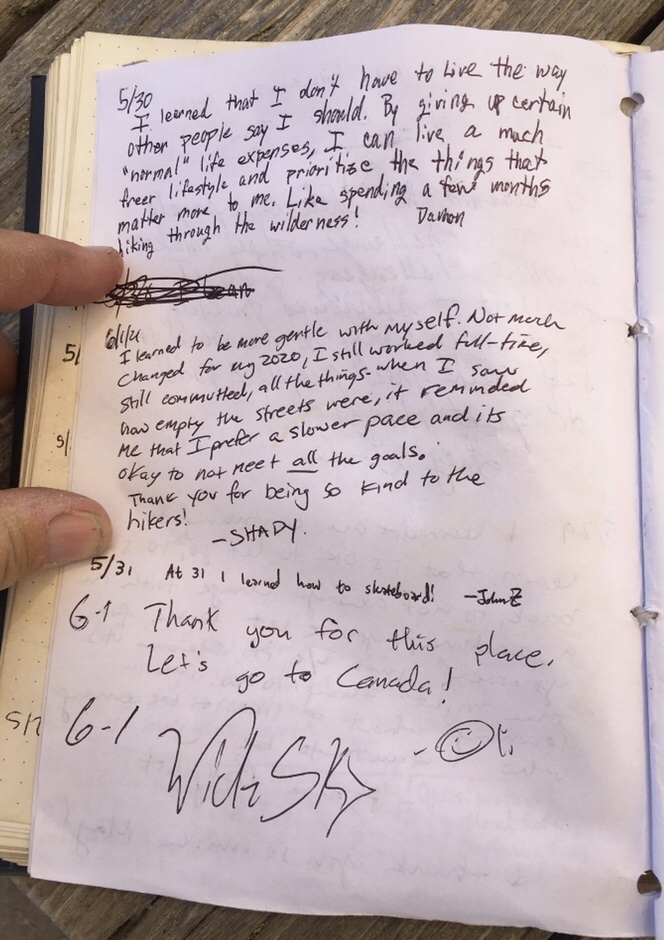 5/30
I learned that I don't have to live the way
other people say I should. By giving up certain
"normal" life expenses, I can live a much
freer lifestyle and prioritize the things that
matter more to me. Like spending a few months
hiking through the wilderness! Damon
6/1/21
I learned to be more gentle with myself. Not much
changed for my 2020, I still worked full-time,
still commutted, all the things- when I saw
how empty the streets were, it reminded
me that I prefer a slower pace and its
okay to not meet all the goals.
Thank you for being so kind to the
hikers!
-SHADY.
5/31 At 31 I learned how to skateboard! -John Z
6-1 Thank you for this place.
Let's go to Canada!
6-1
5/
5/